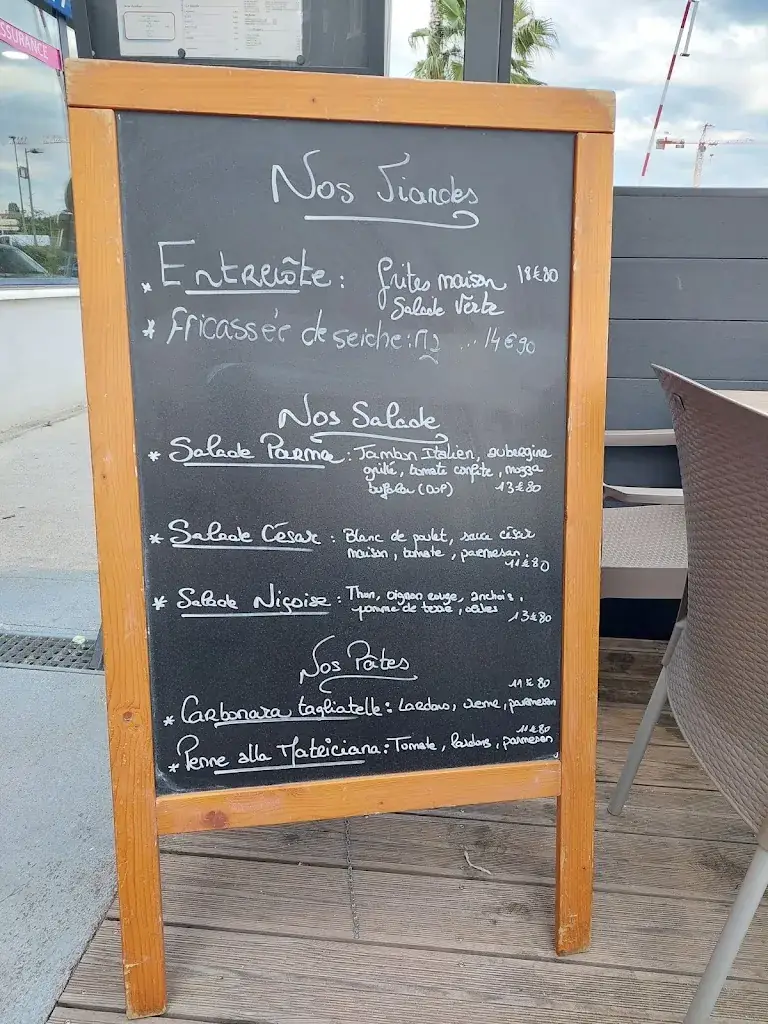 SSURANCE
Nos Viandes
* Entrecôte : frites maison 18€80
Salade Verte
* fricassée de seiche : ... 14€90
Nos Salade
* Salade Parma : Jambon Italien, aubergine
grillé, tomate confite, mozza
buffala (DOP) 13€80
* Salade César : Blanc de poulet, sauce césar
maison, tomate, parmesan.
11€80
* Salade Niçoise : Thon, oignon rouge, anchois,
pomme de terre, olives 13€80
Nos Pâtes
11€80
* Carbonara tagliatelle : Lardons, creme, parmesan
11€80
* Penne alla Matriciana : Tomate, lardons, parmesan